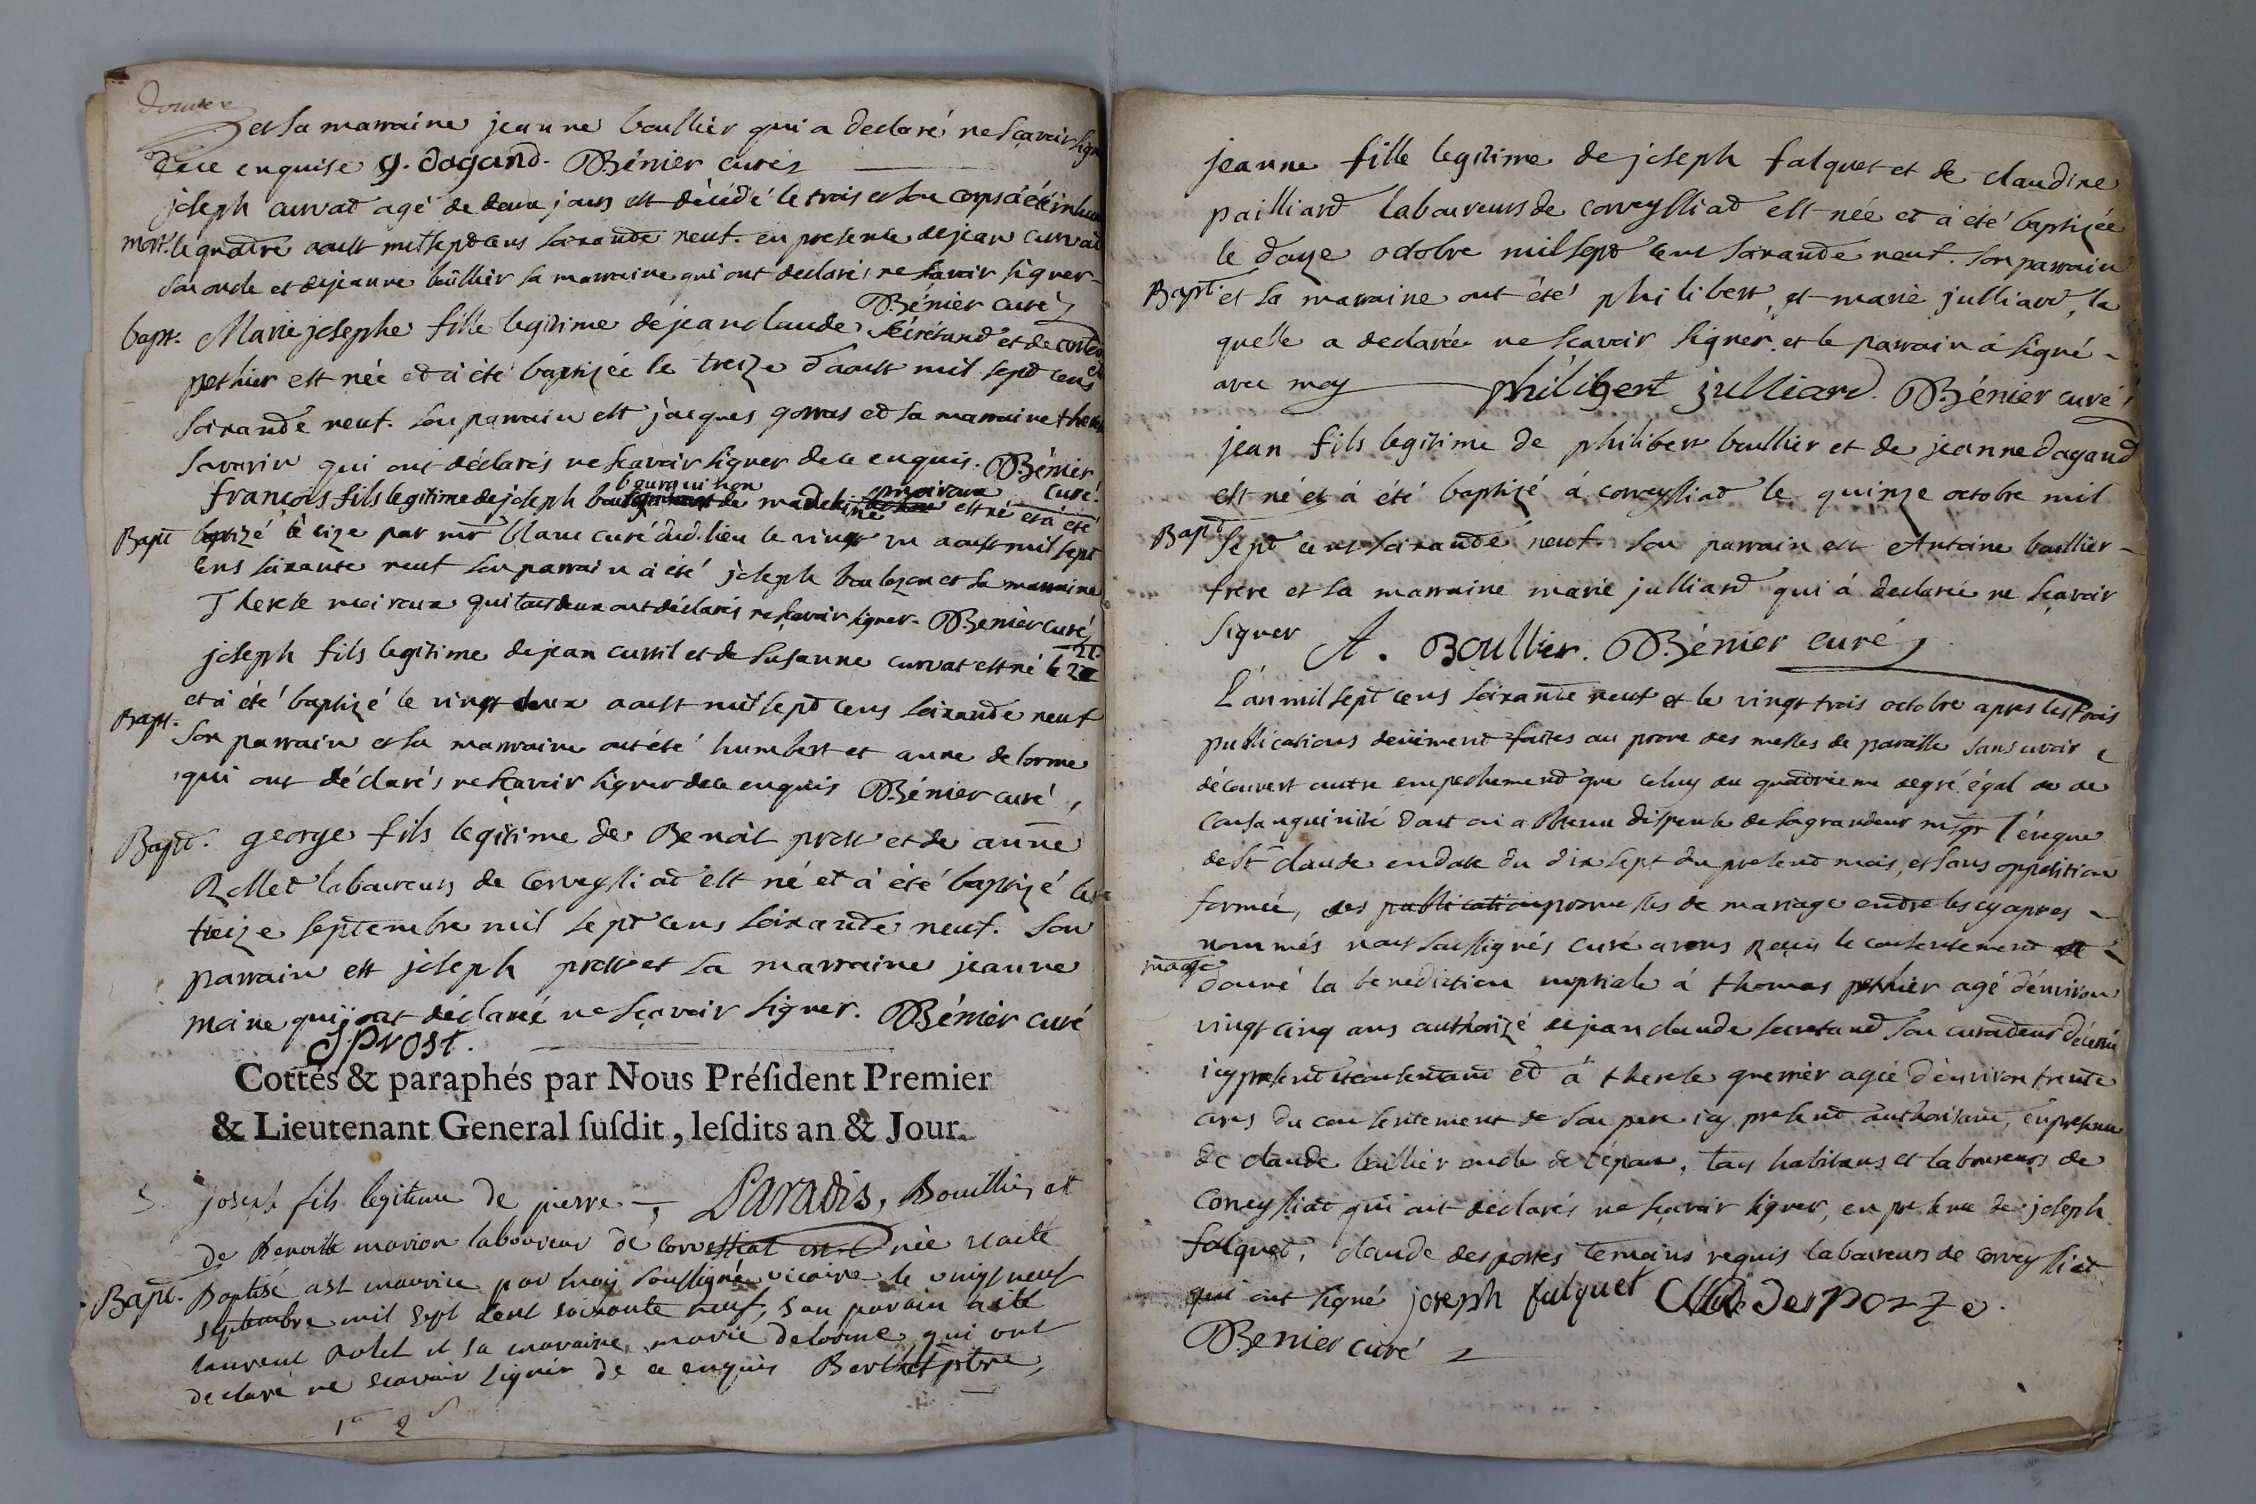 douze
et sa marraine jeanne boullier qui a declaré ne sçavoir sign
de ce enquise g. dagand. Bénier curé
joseph curvat agé de deux jours est décédé le trois et son corps à été inhum
mort. le quatre aoust mil sept cens soixante neuf. en presence de jean curvat
son oncle et de jeanne boullier sa marraine qui ont declarés ne scavoir signer
Bénier curé
bapt. Marie josephe fille legitime de jean claude secretand et de
pethier est née et à été baptizée le treize d'aoust mil sept cens
soixante neuf. son parrain est jacques gorras et sa marraine
savarin qui ont déclarés ne scavoir signer de ce enquis. Bénier
curé.
françois fils legitime de joseph bourguignon de madelaine moiroux est né et à été
Bapt baptizé à cize par mr blanc curé dud. lieu le vingt un aoust mil sept
cens soixante neuf son parrain à été joseph et sa marraine
Therese moiroux qui tous deux ont déclarés ne scavoir signer. Benier curé
joseph fils legitime de jean curvat et de susanne curvat est né le 21
Bapt. et à été baptizé le vingt deux aoust mil sept cens soixante neuf
son parrain et sa marraine ont été humbert et anne delorme
qui ont déclarés ne scavoir signer de ce enquis Bénier curé
Bapt. george fils legitime de Benoit prost et de anne
Rollet laboureurs de corveyssiat est né et à été baptizé le
treize septembre mil sept cens soixante neuf. son
parrain est joseph prost et sa marraine jeanne
moine qui ont déclaré ne sçavoir signer. Bénier curé
J prost.
Cottés & paraphés par Nous Préſident Premier
& Lieutenant General ſuſdit, leſdits an & Jour.
joseph fils legitime de pierre Paradis, Bouillier et
de benoitte marion laboureur de est née et aeté
Bapt. Baptisé a st maurice par moy soussigné vicaire le vingt neuf
septembre mil sept cent soixante neuf, son parain a eté
laurent rolet et sa maraine marie delorme qui ont
declaré ne scavoir signer de ce enquis Berthet ptre,
jeanne fille legitime de joseph falquet et de claudine
pailliard laboureurs de corveyssiad est née et à été baptizée
le doze octobre mil sept cens soixante neuf. son parrain
Bapt. et sa marraine ont été philibert et marie julliard, la
quelle a declarée ne sçavoir signer et le parrain à signé
avec moy philibert julliard. Bénier curé
jean fils legitime de philibert boullier et de jeanne dagand
est né et à été baptizé à corveyssiad le quinze octobre mil
Bapt. sept cens soixante neuf. son parrain est Antoine boullier
frere et sa marraine marie julliard qui à declarée ne sçavoir
signer A. Boullier. Bénier curé
L'an mil sept cens soixante neuf et le vingt trois octobre apres les trois
publications deüement faites au prone des messes de paroisse sans avoir
découvert autre empechement que celuy du quatrieme degré égal de
consanguinité dont on a obtenu dispense de sa grandeur msgr l'éveque
de st claude en date du dix sept du present mois, et sans opposition
formée, des promesses de mariage entre les cy apres
nommés nous soussignés curé avons reçus le consentement et
mage donné la benediction nuptiale à thomas pethier agé d'environ
vingt cinq ans authorizé de jean claude secretand son curateur décerné
icy present et consentant et à therese querrier agée d'environ trente
ans du consentement de son pere icy present authorisant, en presence
de claude boullier oncle de l'époux, tous habitans et laboureurs de
Corveyssiat qui ont déclarés ne sçavoir signer, en presence de joseph
falquet, claude desportes temoins requis laboureurs de corveyssiat
qui ont signé joseph falquet Desporze.
Benier curé